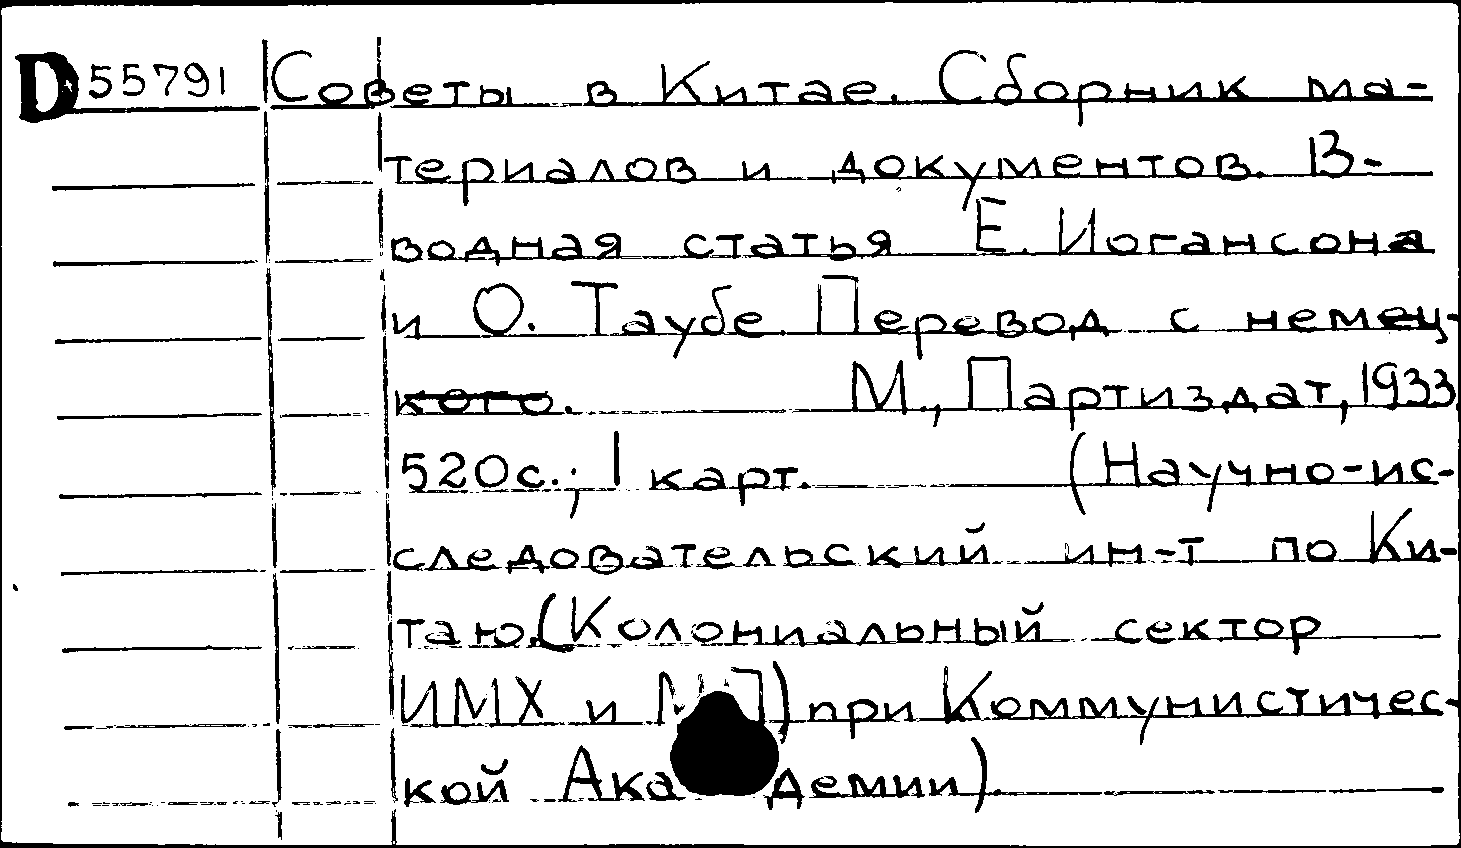 D 55791 Советы в Китае. Сборник ма-
териалов и документов. В-
водная статья Е. Иогансона
и О. Таубе. Перевод с немец-
кого. М., Партиздат, 1933
520с.; 1 карт. (Научно-ис-
следовательский ин-т по Ки-
таю.(Колониальный сектор
ИМХ и при Коммунистичес-
кой Академии).